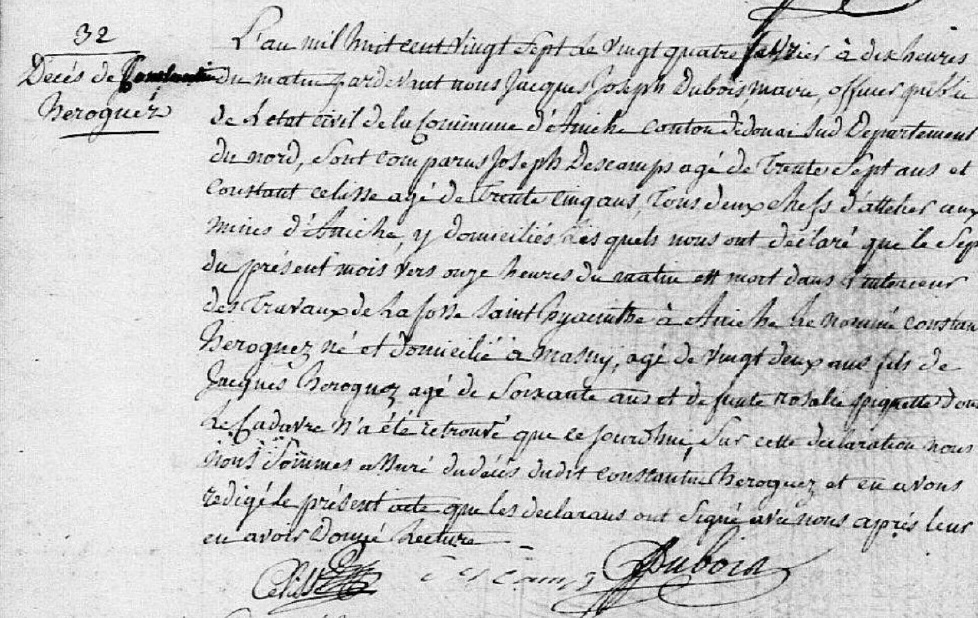 32
Decés de Constantin
heroguez
L'an mil huit cent vingt sept Le vingt quatre fevrier à dix heures
du matin pardevant nous Jacques Joseph Dubois, maire, officier public
de L'etat civil de la Commune d'Aniche canton de douai Sud Departement
du nord, sont comparus Joseph Descamps agé de trente Sept ans et
Constant celisse agé de trente cinq ans, tous deux chefs d'attelier aux
mines d'Aniche, y domiciliés, Les quels nous ont déclaré que le Sept
du présent mois vers onze heures du matin est mort dans L'interieur
des travaux de La fosse Saint hyacinthe à Aniche Le nommé constant
heroguez né et domicilié à masny, agé de vingt deux ans fils de
Jacques heroguez agé de Soixante ans et defunte rosalie piquette Dont
Le Cadavre n'a été retrouvé que ce jourd'hui, Sur cette declaration nous
nous Sommes assuré du décés dudit constantin heroguez et en avons
redigé le présent acte que les declarans ont Signé avec nous après leur
en avoir Donné Lecture
Celisse Descamps Dubois